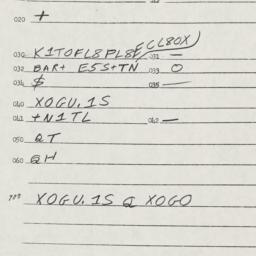 020 +
030 K1TOFL8PL8E(CL80X) 031 —
032 BAR+ E5S+TN 033 O
034 $ 035 —
040 XOGU.1S
041 +N1TL 042 —
050 QT
060 QH
XOGU.1S Q XOGO